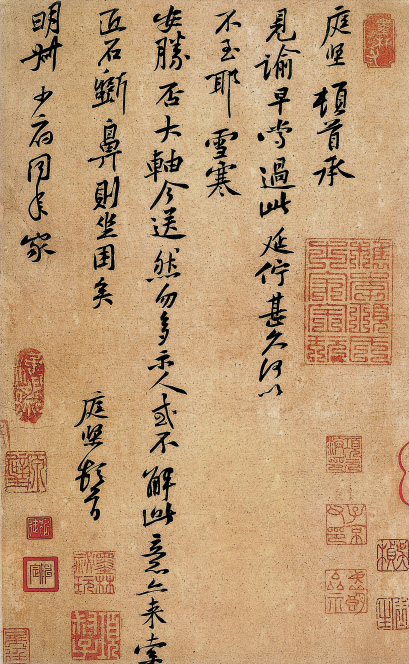 庭堅頓首承
見諭早嘗過此延佇甚久何以
不至耶雪寒
安勝否大軸今送然勿多示人或不解此意亦来索
匠石斲鼻則坐困矣
庭堅頓首
明叔少府同年家